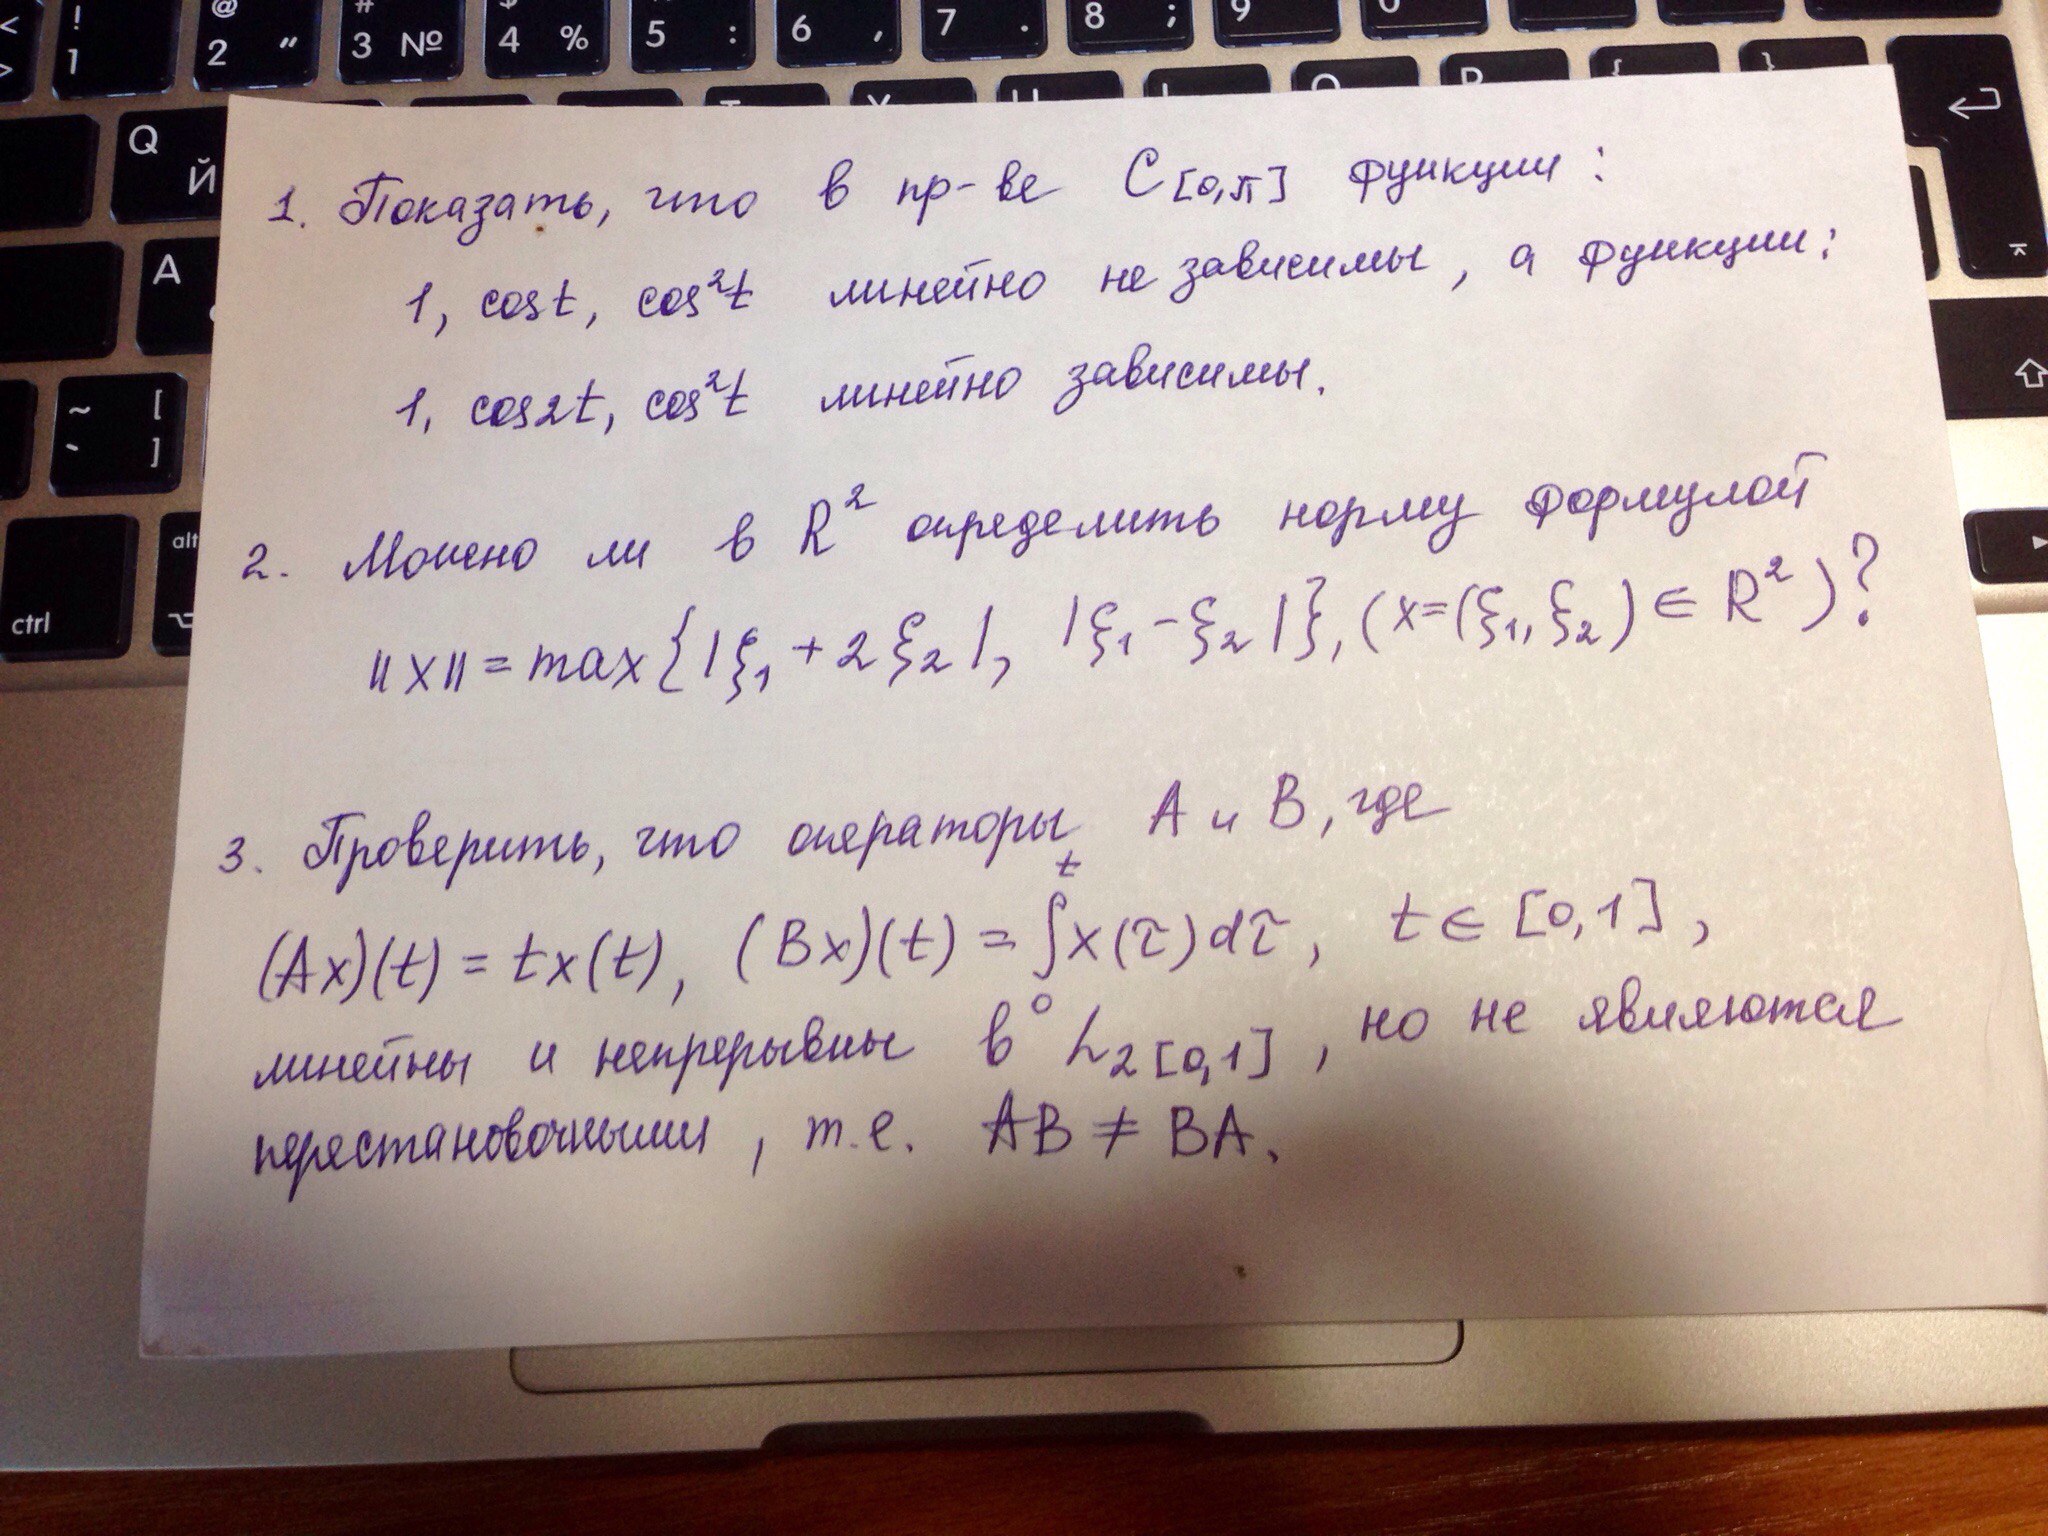 ! 1
@ 2 "
# 3 №
$ 4 %
5 :
6 ,
7 .
8 ;
9
Q Й
A
~ [
` ]
ctrl
alt
1. Показать, что в пр-ве C[0,π] функции:
1, cost, cos²t линейно независимы, а функции:
1, cos2t, cos²t линейно зависимы.
2. Можно ли в R² определить норму формулой
||x|| = max{|ξ₁+2ξ₂|, |ξ₁-ξ₂|}, (x=(ξ₁,ξ₂)∈R²)?
3. Проверить, что операторы A и B, где
(Ax)(t) = tx(t), (Bx)(t) = ∫₀ᵗx(τ)dτ, t∈[0,1],
линейны и непрерывны в L₂[0,1], но не являются
перестановочными, т.е. AB ≠ BA.